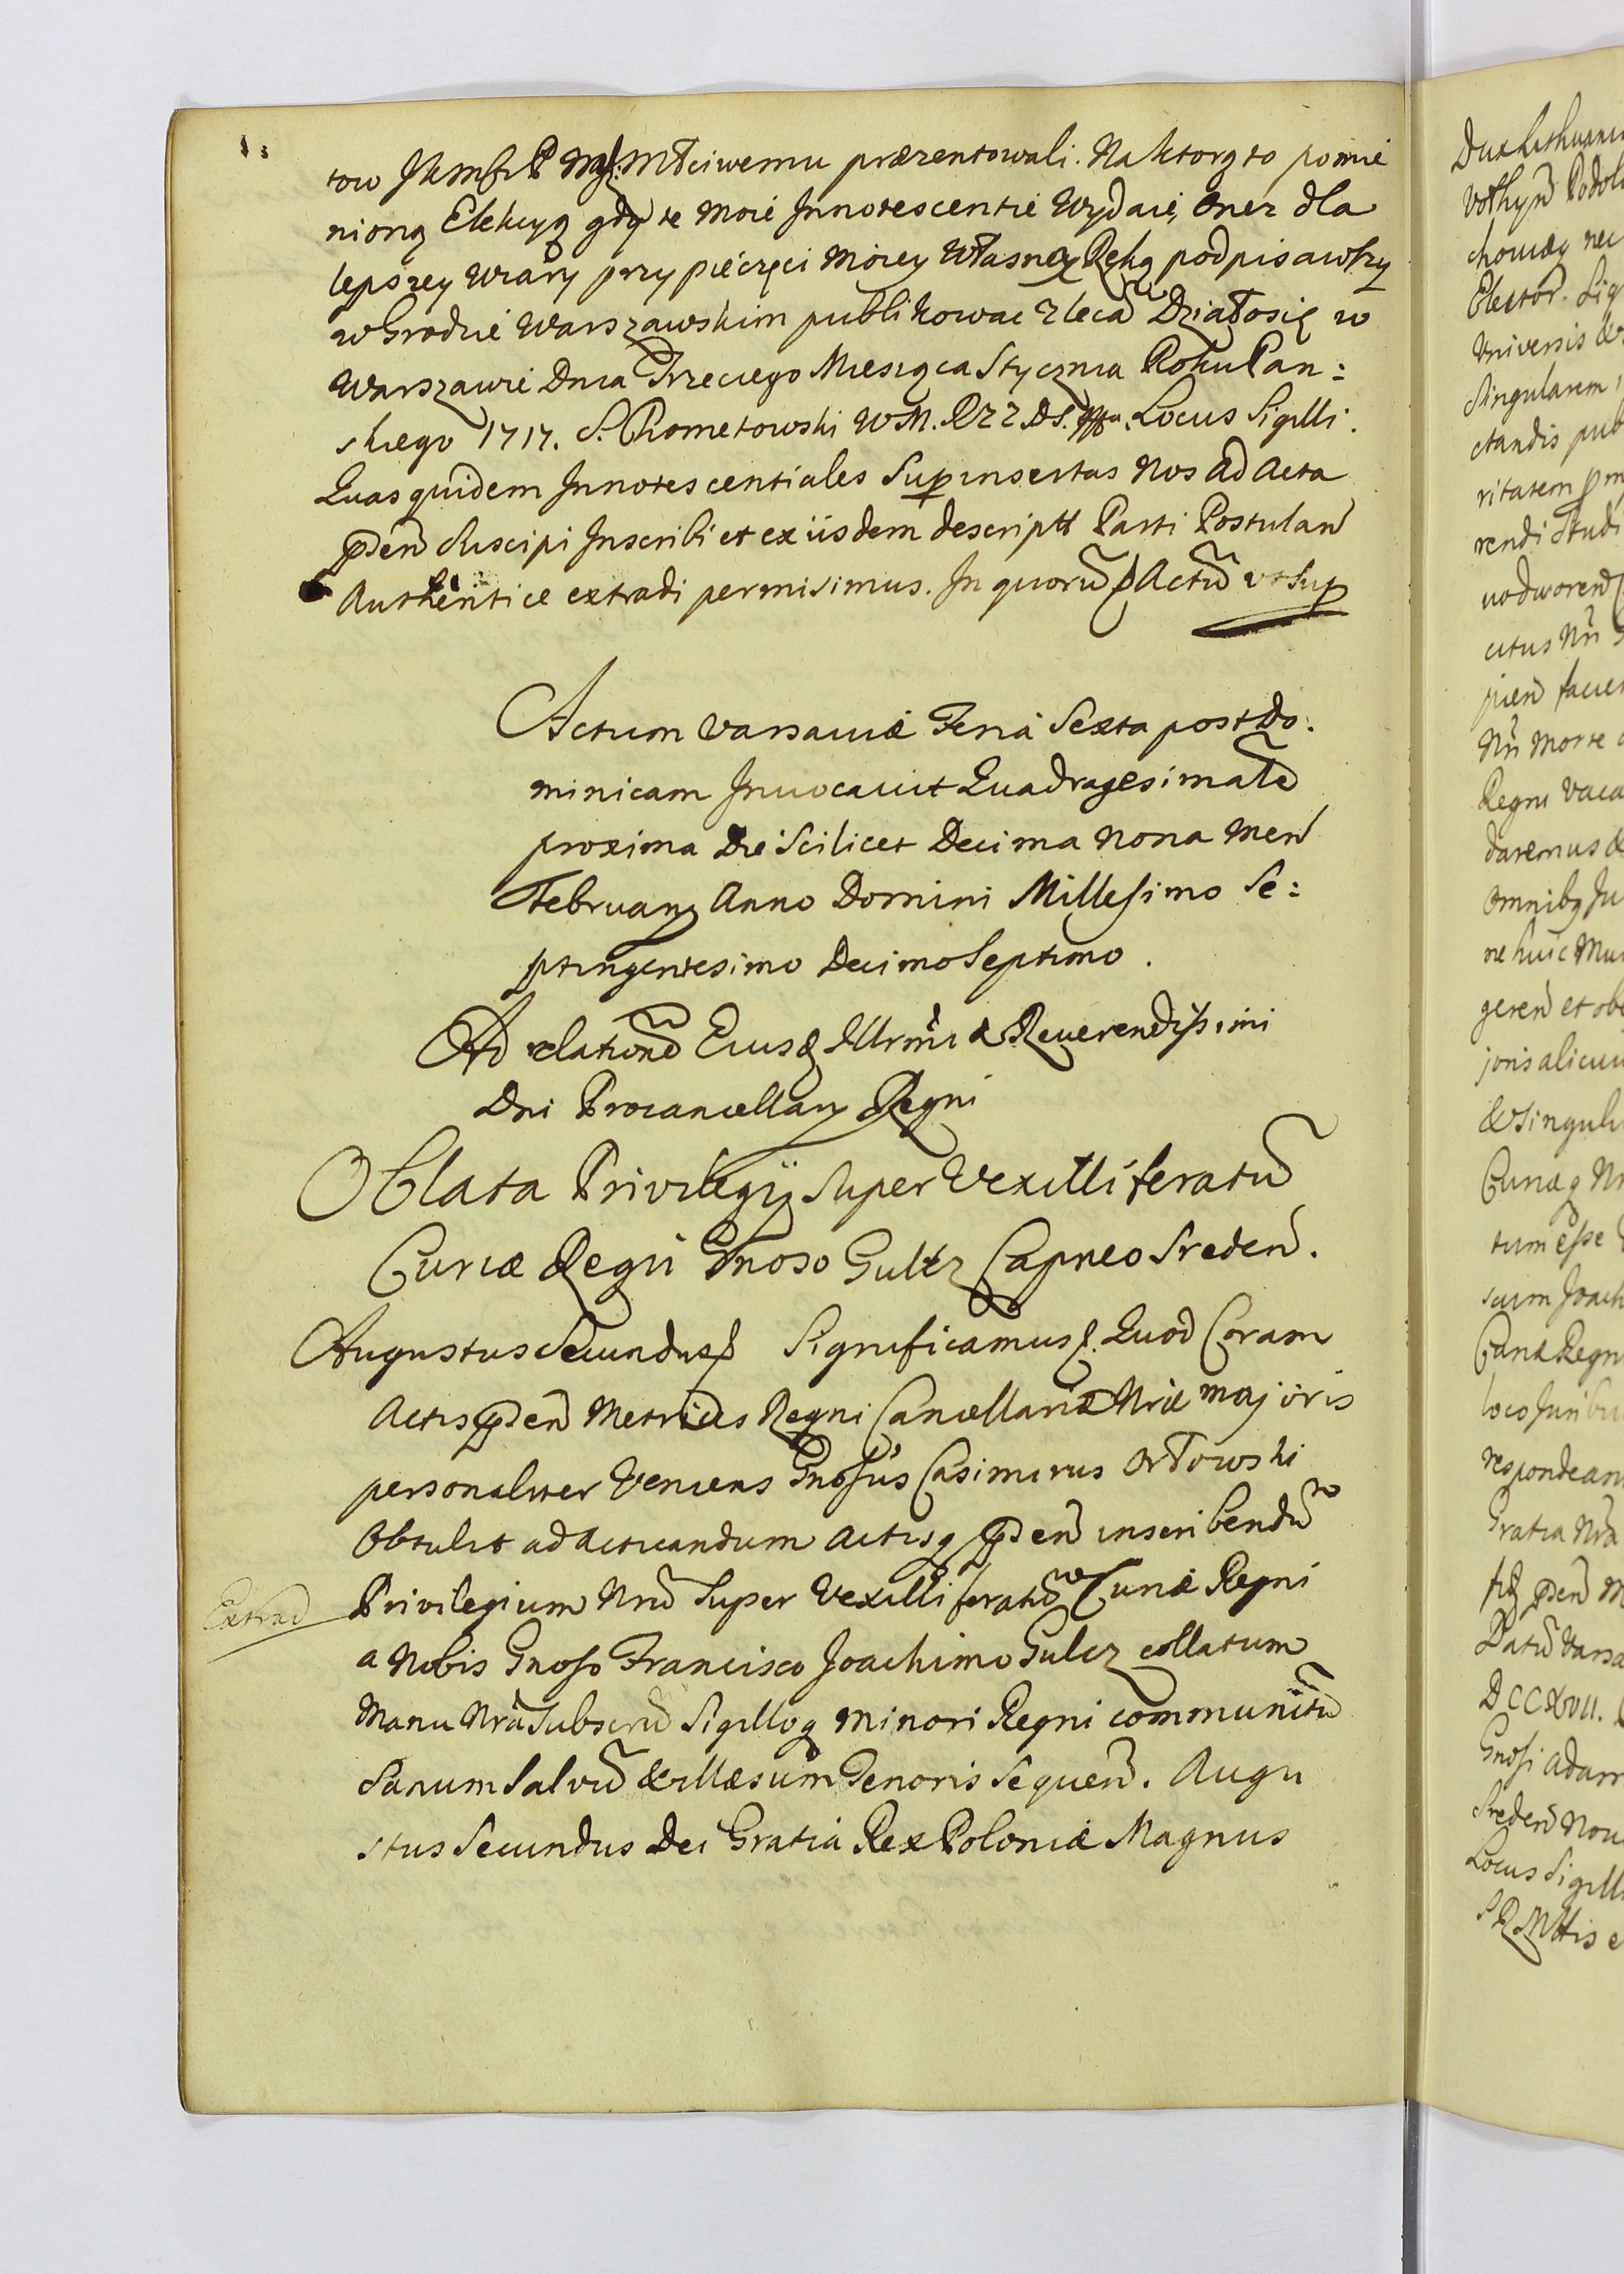 tow JKmści P Mṡ. Młciwemu præzentowali. Na ktorą to pomie
nioną Elekcyą gdy te moie Innotescentie Wydaię, onez dla
lepszey wiary przy pieczęci moiey Własney Ręką podpisawszy
w Grodzie Warszawskim publikowac zlecam̃ Działosię w
Warszawie Dnia Trzeciego Miesiąca Stycznia Roku Pan:
skiego 1717. S. Chometowski W M. Locus Sigilli.
Quas quidem Innotescentiales Sup insertas Nos ad Acta
p̃den̄ suscipi Inscribi et ex iisdem descriptt Parti Postulan̄
Authentice extradi permisimus. In quorū ƥ Actū vt sup
Actum Varsaviæ Feria Sexta post Do:
minicam Invocavit Quadragesimalē
proxima Die Scilicet Decima Nona Men̄
Februarÿ Anno Domini Millesimo Se:
ptingentesimo Decimo Septimo.
Ad relationē Eiusd Illrmi & Reverendissimi
Dni Procancellarÿ Regni
Oblata Privilegÿ super Vexilliferatū
Curiæ Regni Gnoso Gultz Capneo Sreden̄.
Augustus Secundus ƥ Significamus ƥ. Quod Coram
Actis p̃den̄ Metrices Regni Cancellariæ Nræ majoris
personaliter Veniens Gnosus Casimirus Orłowski
Obtulit ad acticandum actisq p̃den̄ inscribendū
Extrad
Privilegium Nrū super Vexilliferatū Curiæ Regni
a Nobis Gnoso Francisco Joachimo Gulcz collatum
Manu Nrā Subscrū Sigilloq minori Regni communitū
Sanum Salvū & illæsum Tenoris Sequen̄. Augu
stus Secundus Dei Gratiâ Rex Poloniæ Magnus
Dux Lithuaniæ
Vołhyn̄ Podol
choviæq nec
Elector. Sig
Universis &
Singularem
ctandis pub
ritatem
rendi studi
uodworen̄
citus Nri
pien̄ faver
Nri morte
Regni vaca
daremus &
Omnibq Ju
ne huic Mu
geren̄ et ob
joris alicui
& singuli
Curiæq Nr
tum esse
sum Joach
Curiæ Regn
loco Juribu
respondean
Gratia Nra
p̃den̄ M
Datū Varsa
DCCXVII.
Gnosi Adam
Sreden̄ Nov
Locus Sigilli
S R Mttis